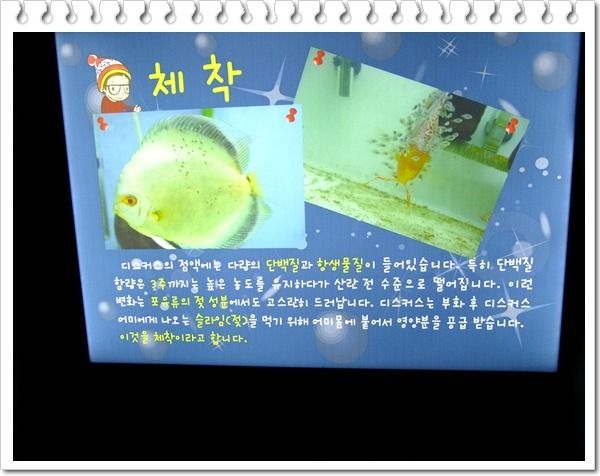 체 착
디스커스의 점액에는 다량의 단백질과 항생물질이 들어있습니다. 특히 단백질
함량은 3주까지는 높은 농도를 유지하다가 산란 전 수준으로 떨어집니다. 이런
변화는 포유류의 젖 성분에서도 고스란히 드러납니다. 디스커스는 부화 후 디스커스
어미에게 나오는 슬라임(젖)을 먹기 위해 어미몸에 붙어서 영양분을 공급 받습니다.
이것을 체착이라고 합니다.